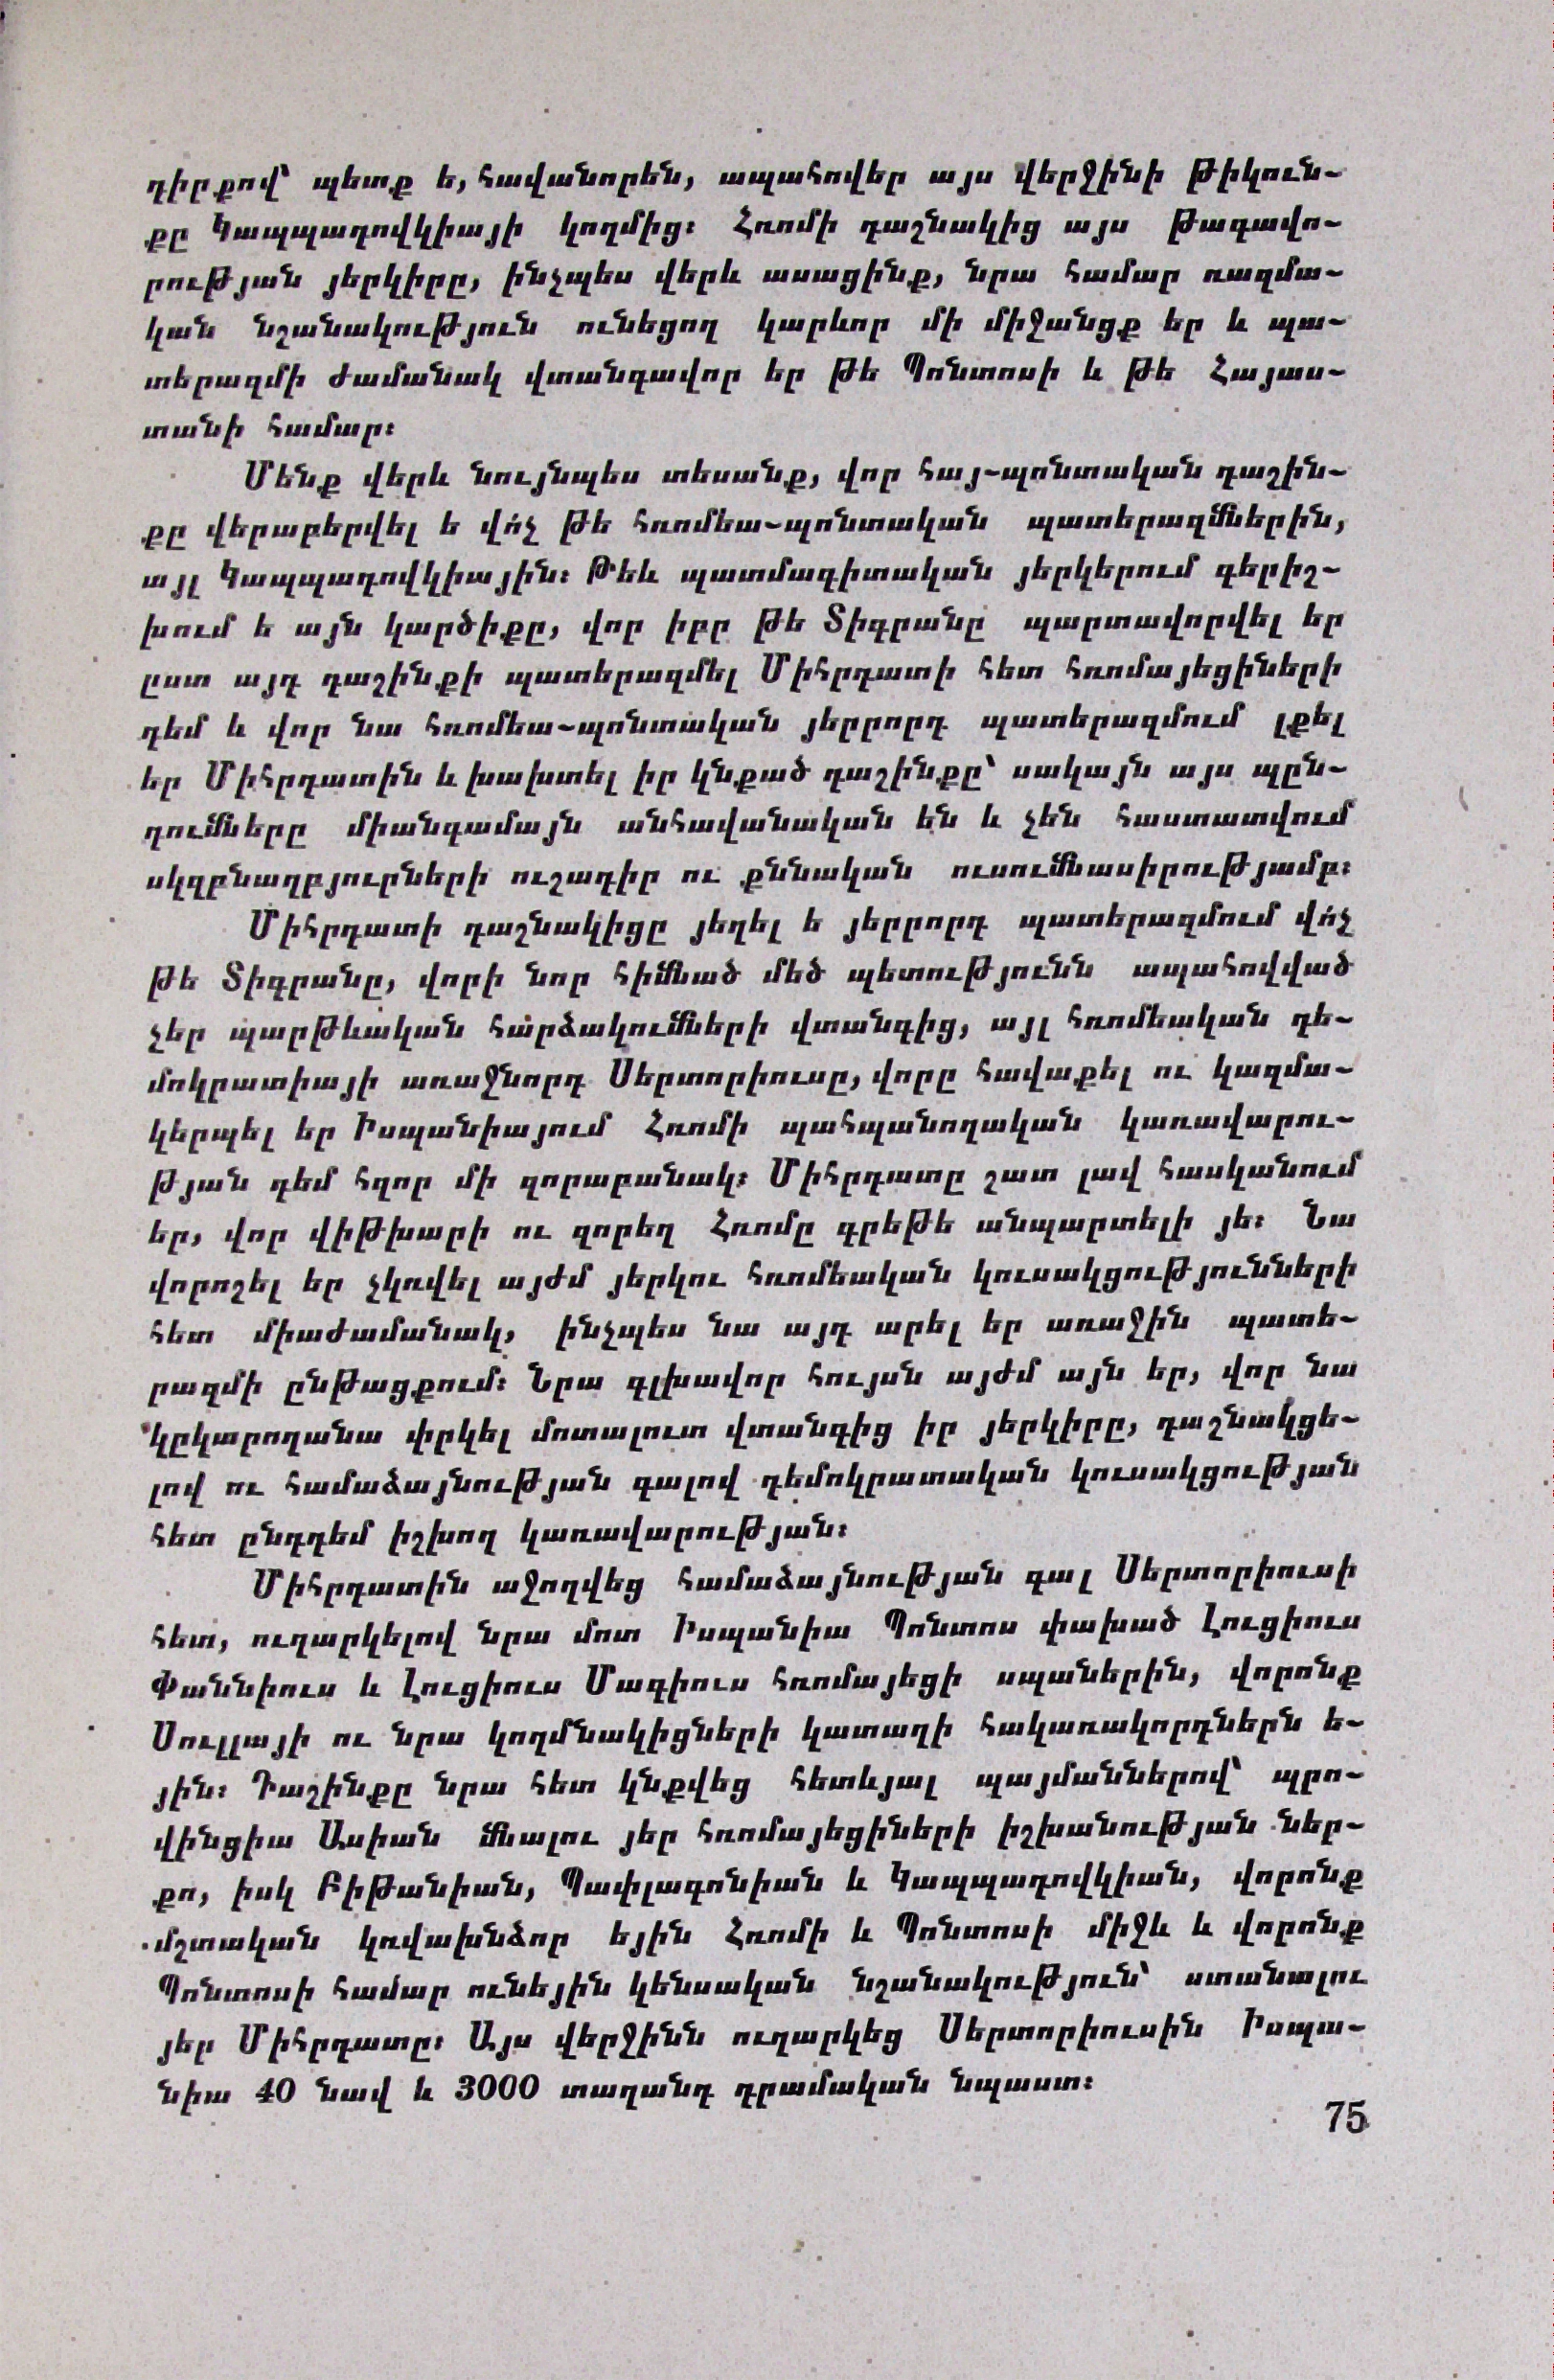 դիրքով՝ պետք ե, հավանորեն, ապահովեր այս վերջինի թիկուն-
քը Կապպադովկիայի կողմից։ Հռոմի դաշնակից այս թագավո-
րության յերկիրը, ինչպես վերև ասացինք, նրա համար ռազմա-
կան նշանակություն ունեցող կարևոր մի միջանցք եր և պա-
տերազմի ժամանակ վտանգավոր եր թե Պոնտոսի և թե Հայաս-
տանի համար։
Մենք վերև նույնպես տեսանք, վոր հայ-պոնտական դաշին-
քը վերաբերվել ե վո՛չ թե հռոմեա-պոնտական պատերազմներին,
այլ Կապպադովկիային։ Թեև պատմագիտական յերկերում գերիշ-
խում ե այն կարծիքը, վոր իբր թե Տիգրանը պարտավորվել եր
ըստ այդ դաշինքի պատերազմել Միհրդատի հետ հռոմայեցիների
դեմ և վոր նա հռոմեա-պոնտական յերրորդ պատերազմում լքել
եր Միհրդատին և խախտել իր կնքած դաշինքը՝ սակայն այս պըն-
դումները միանգամայն անհավանական են և չեն հաստատվում
սկզբնաղբյուրների ուշադիր ու քննական ուսումնասիրությամբ։
Միհրդատի դաշնակիցը յեղել ե յերրորդ պատերազմում վո՛չ
թե Տիգրանը, վորի նոր հիմնած մեծ պետությունն ապահովված
չեր պարթևական հարձակումների վտանգից, այլ հռոմեական դե-
մոկրատիայի առաջնորդ Սերտորիուսը, վորը հավաքել ու կազմա-
կերպել եր Իսպանիայում Հռոմի պահպանողական կառավարու-
թյան դեմ հզոր մի զորաբանակ։ Միհրդատը շատ լավ հասկանում
եր, վոր վիթխարի ու զորեղ Հռոմը գրեթե անպարտելի յե։ Նա
վորոշել եր չկռվել այժմ յերկու հռոմեական կուսակցությունների
հետ միաժամանակ, ինչպես նա այդ արել եր առաջին պատե-
րազմի ընթացքում։ Նրա գլխավոր հույսն այժմ այն եր, վոր նա
կըկարողանա փրկել մոտալուտ վտանգից իր յերկիրը, դաշնակցե-
լով ու համաձայնության գալով դեմոկրատական կուսակցության
հետ ընդդեմ իշխող կառավարության։
Միհրդատին աջողվեց համաձայնության գալ Սերտորիուսի
հետ, ուղարկելով նրա մոտ Իսպանիա Պոնտոս փախած Լուցիուս
Փաննիուս և Լուցիուս Մագիուս հռոմայեցի սպաներին, վորոնք
Սուլլայի ու նրա կողմնակիցների կատաղի հակառակորդներն ե-
յին։ Դաշինքը նրա հետ կնքվեց հետևյալ պայմաններով՝ պրո-
վինցիա Ասիան մնալու յեր հռոմայեցիների իշխանության ներ-
քո, իսկ Բիթանիան, Պափլագոնիան և Կապպադովկիան, վորոնք
մշտական կռվախնձոր եյին Հռոմի և Պոնտոսի միջև և վորոնք
Պոնտոսի համար ունեյին կենսական նշանակություն՝ ստանալու
յեր Միհրդատը։ Այս վերջինն ուղարկեց Սերտորիուսին Իսպա-
նիա 40 նավ և 3000 տաղանդ դրամական նպաստ։
75